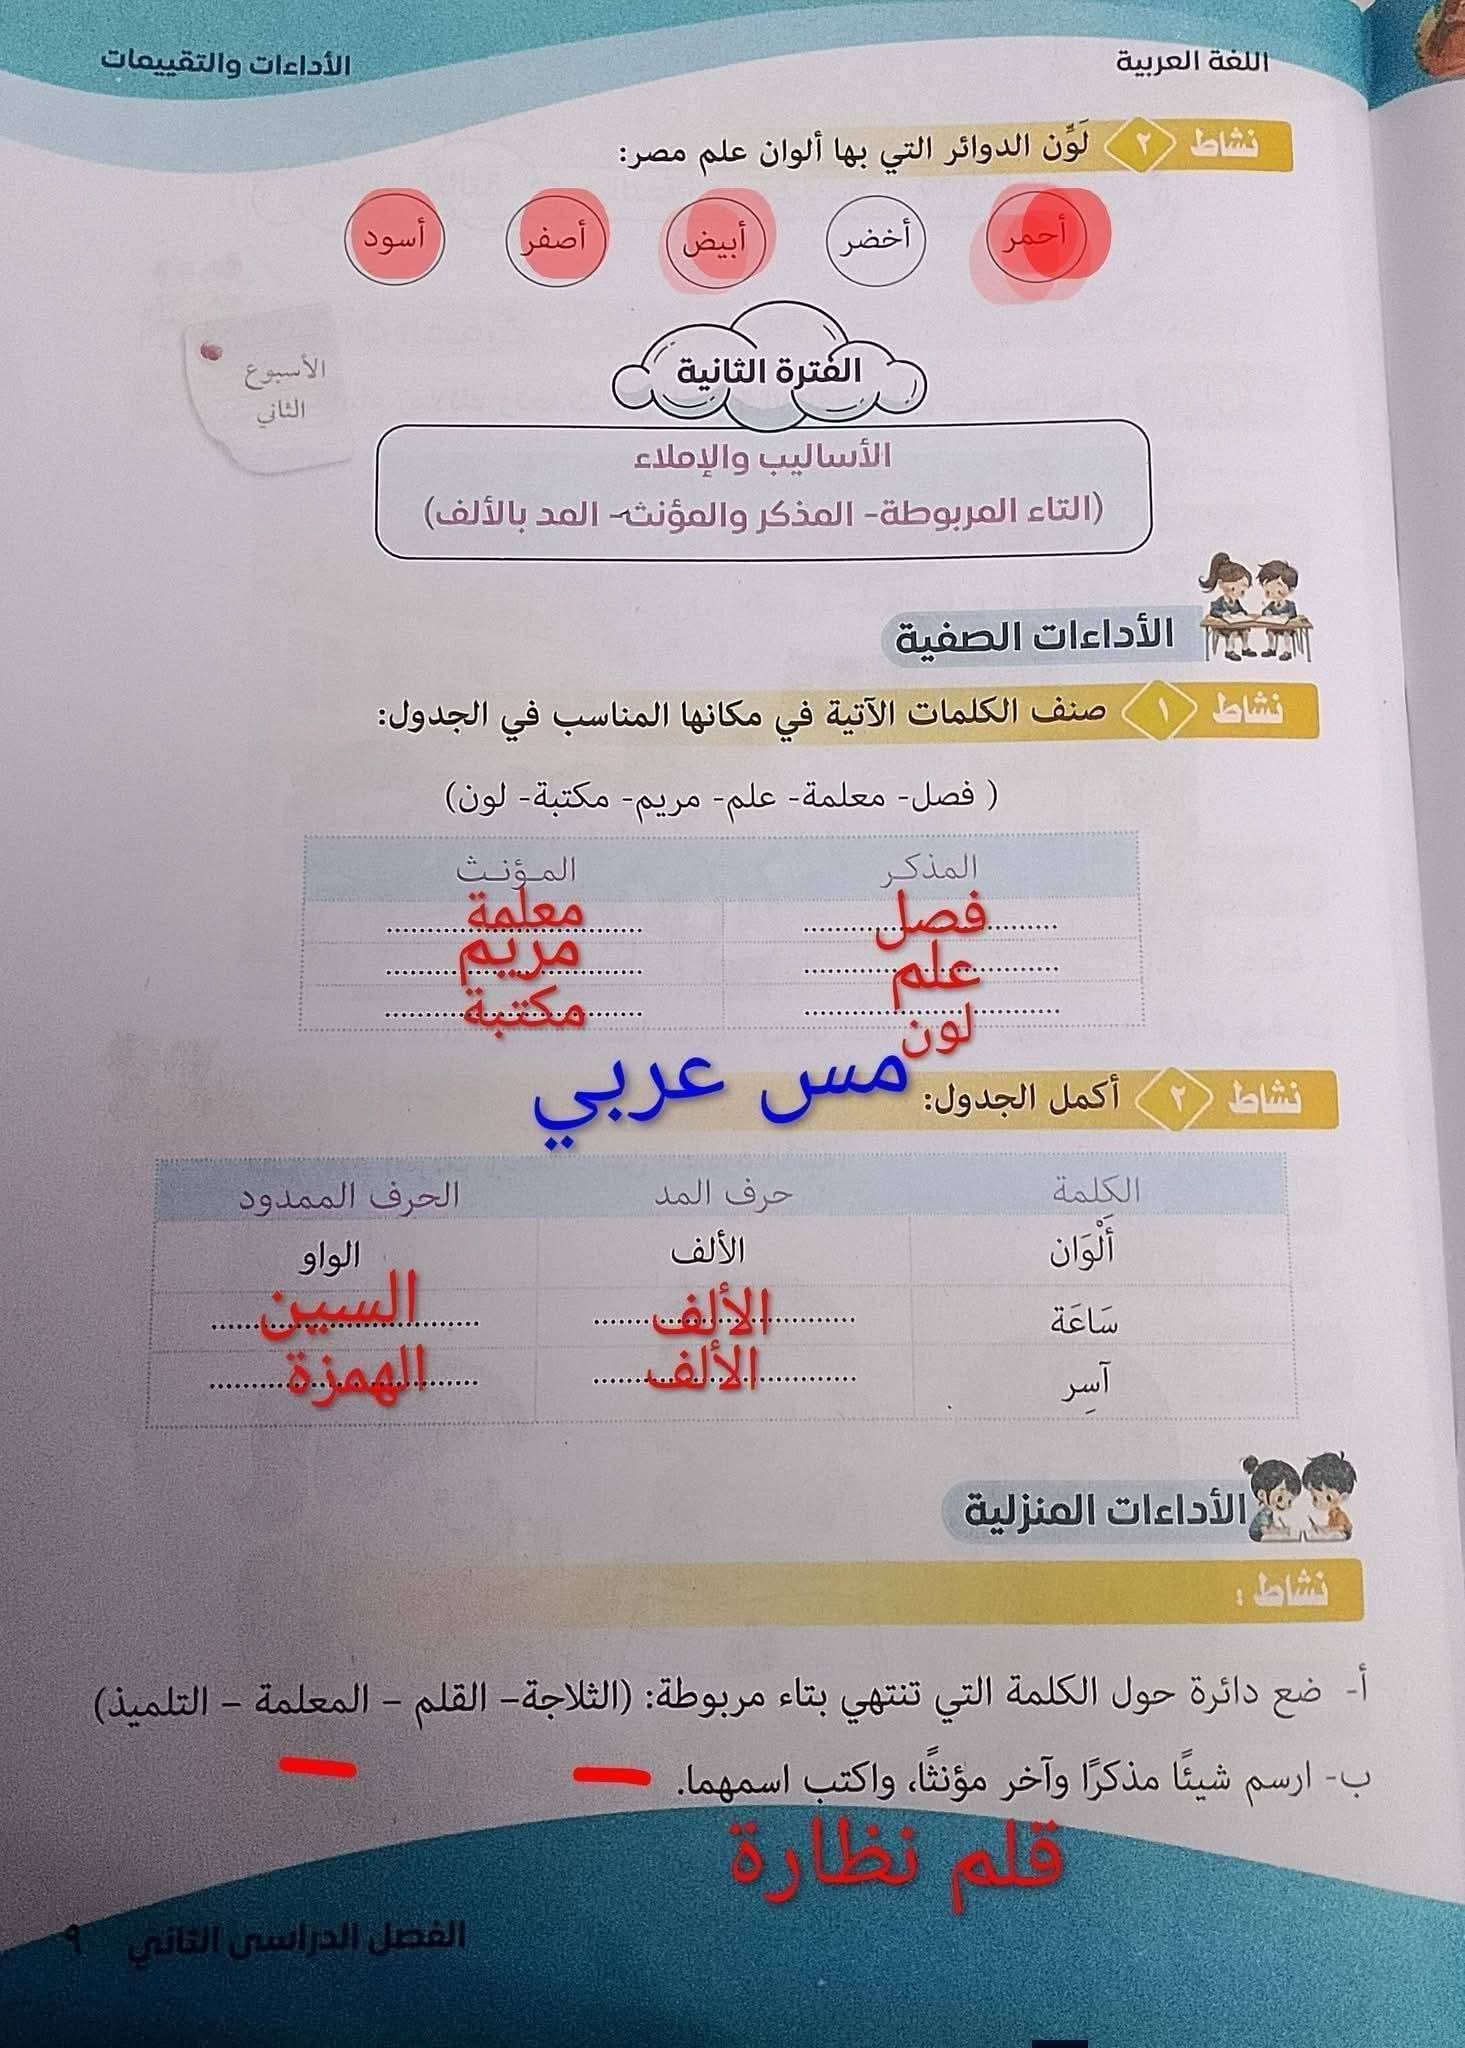 اللغة العربية
الأداءات والتقييمات
نشاط ٢ لَوِّن الدوائر التي بها ألوان علم مصر:
أحمر أخضر أبيض أصفر أسود
الفترة الثانية
الأسبوع
الثاني
الأساليب والإملاء
(التاء المربوطة- المذكر والمؤنث- المد بالألف)
الأداءات الصفية
نشاط ١ صنف الكلمات الآتية في مكانها المناسب في الجدول:
( فصل- معلمة- علم- مريم- مكتبة- لون)
المذكر المؤنث
فصل معلمة
علم مريم
لون مكتبة
مس عربي
نشاط ٢ أكمل الجدول:
الكلمة حرف المد الحرف الممدود
أَلْوَان الألف الواو
سَاعَة الألف السين
آسِر الألف الهمزة
الأداءات المنزلية
نشاط :
أ- ضع دائرة حول الكلمة التي تنتهي بتاء مربوطة: (الثلاجة– القلم – المعلمة – التلميذ)
ب- ارسم شيئًا مذكرًا وآخر مؤنثًا، واكتب اسمهما.
قلم نظارة
الفصل الدراسي الثاني ٩